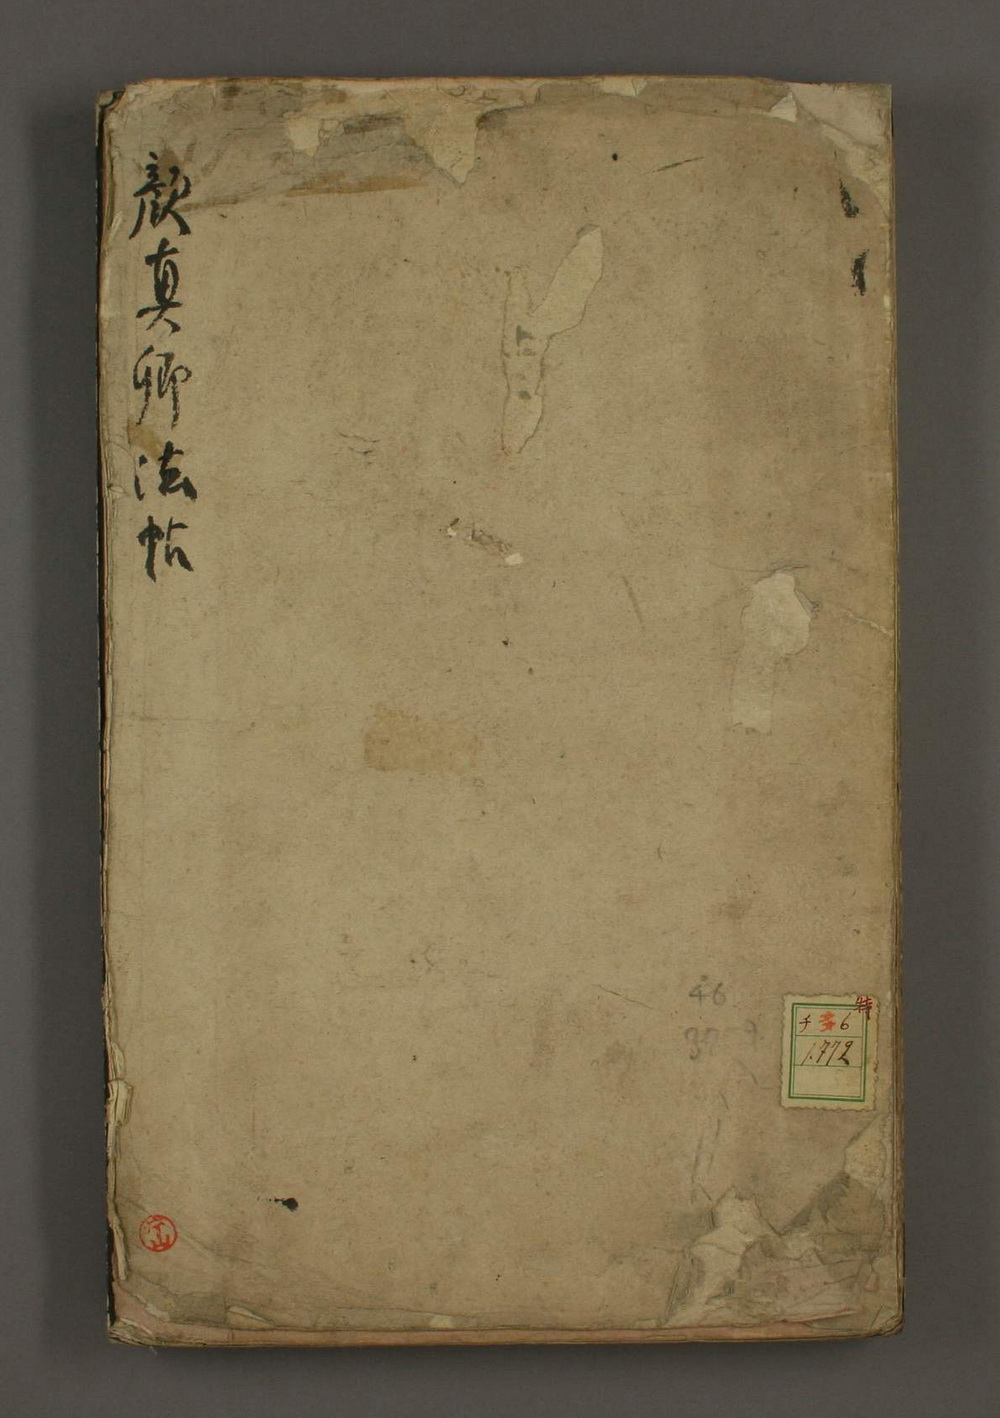 顔真卿法帖
46
37 9
特
チ 6
1772